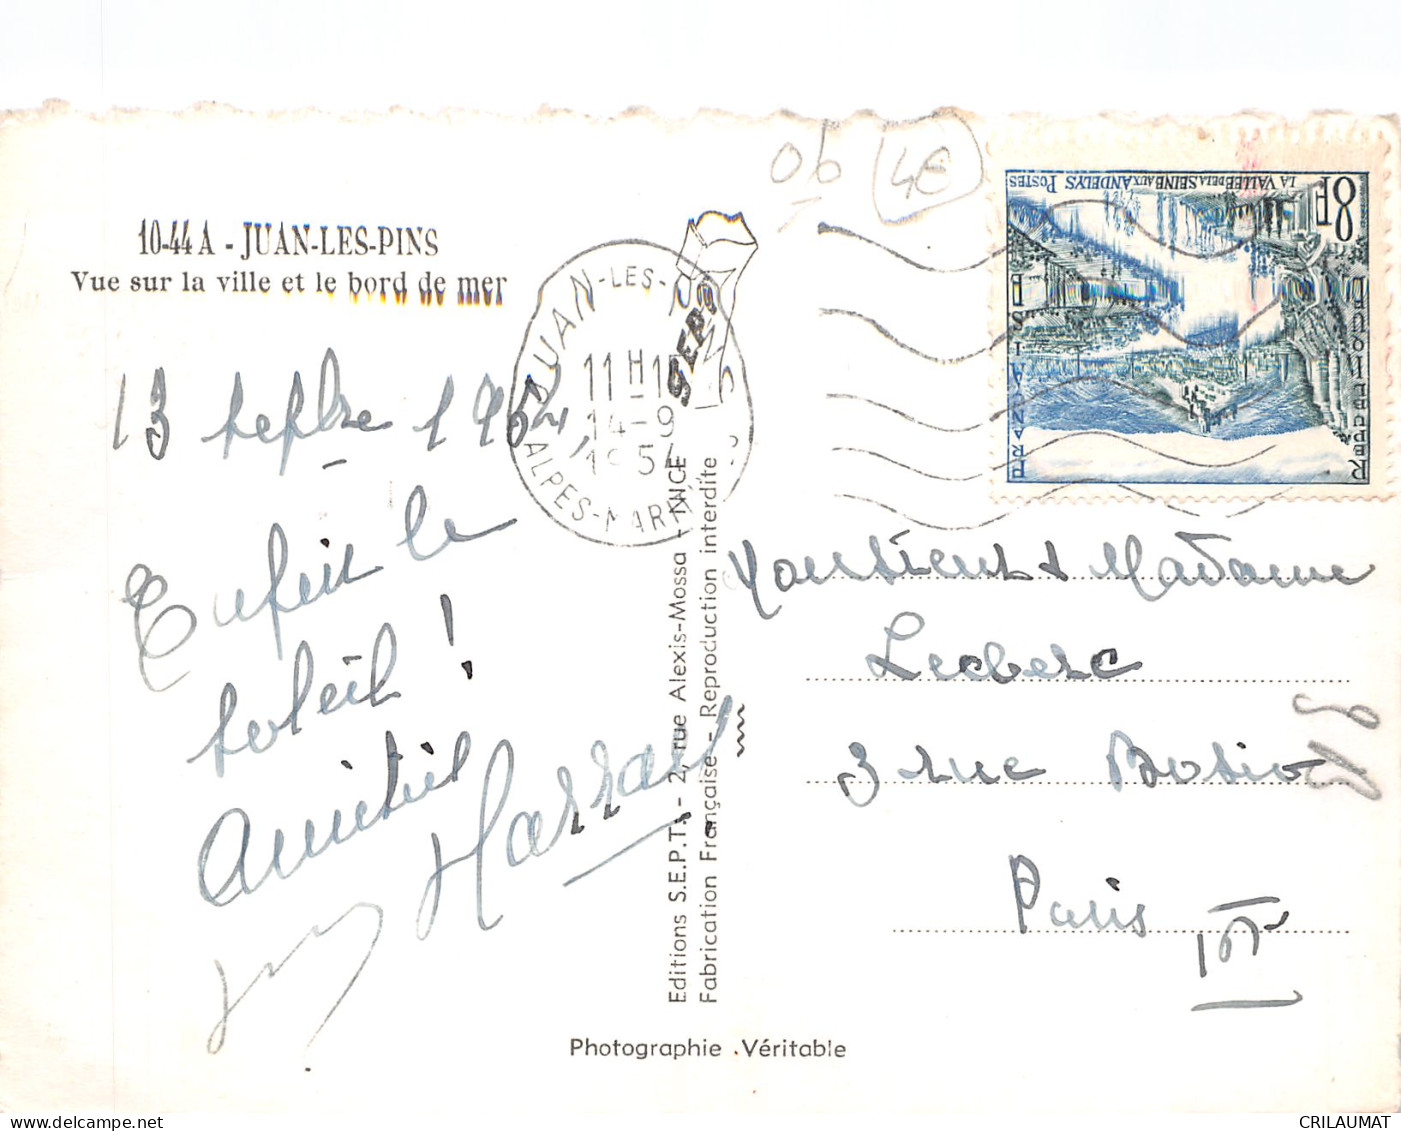 10-44 A - JUAN-LES-PINS
Vue sur la ville et le bord de mer
13 septbre 1954
Enfin le
soleil !
Amitiés
JUAN-LES-PINS
11 H 15
14-9
1954
ALPES-MARITIMES
SEPT
Editions S.E.P.T. - 2, rue Alexis-Mossa - NICE
Fabrication Française - Reproduction interdite
Photographie Véritable
Ob
4€
8F
LA VALLEE DE LA SEINE AUX ANDELYS POSTES
REPUBLIQUE
FRANÇAISE
Monsieur & Madame
Leclerc
3 rue Bosio
Paris
CRILAUMAT